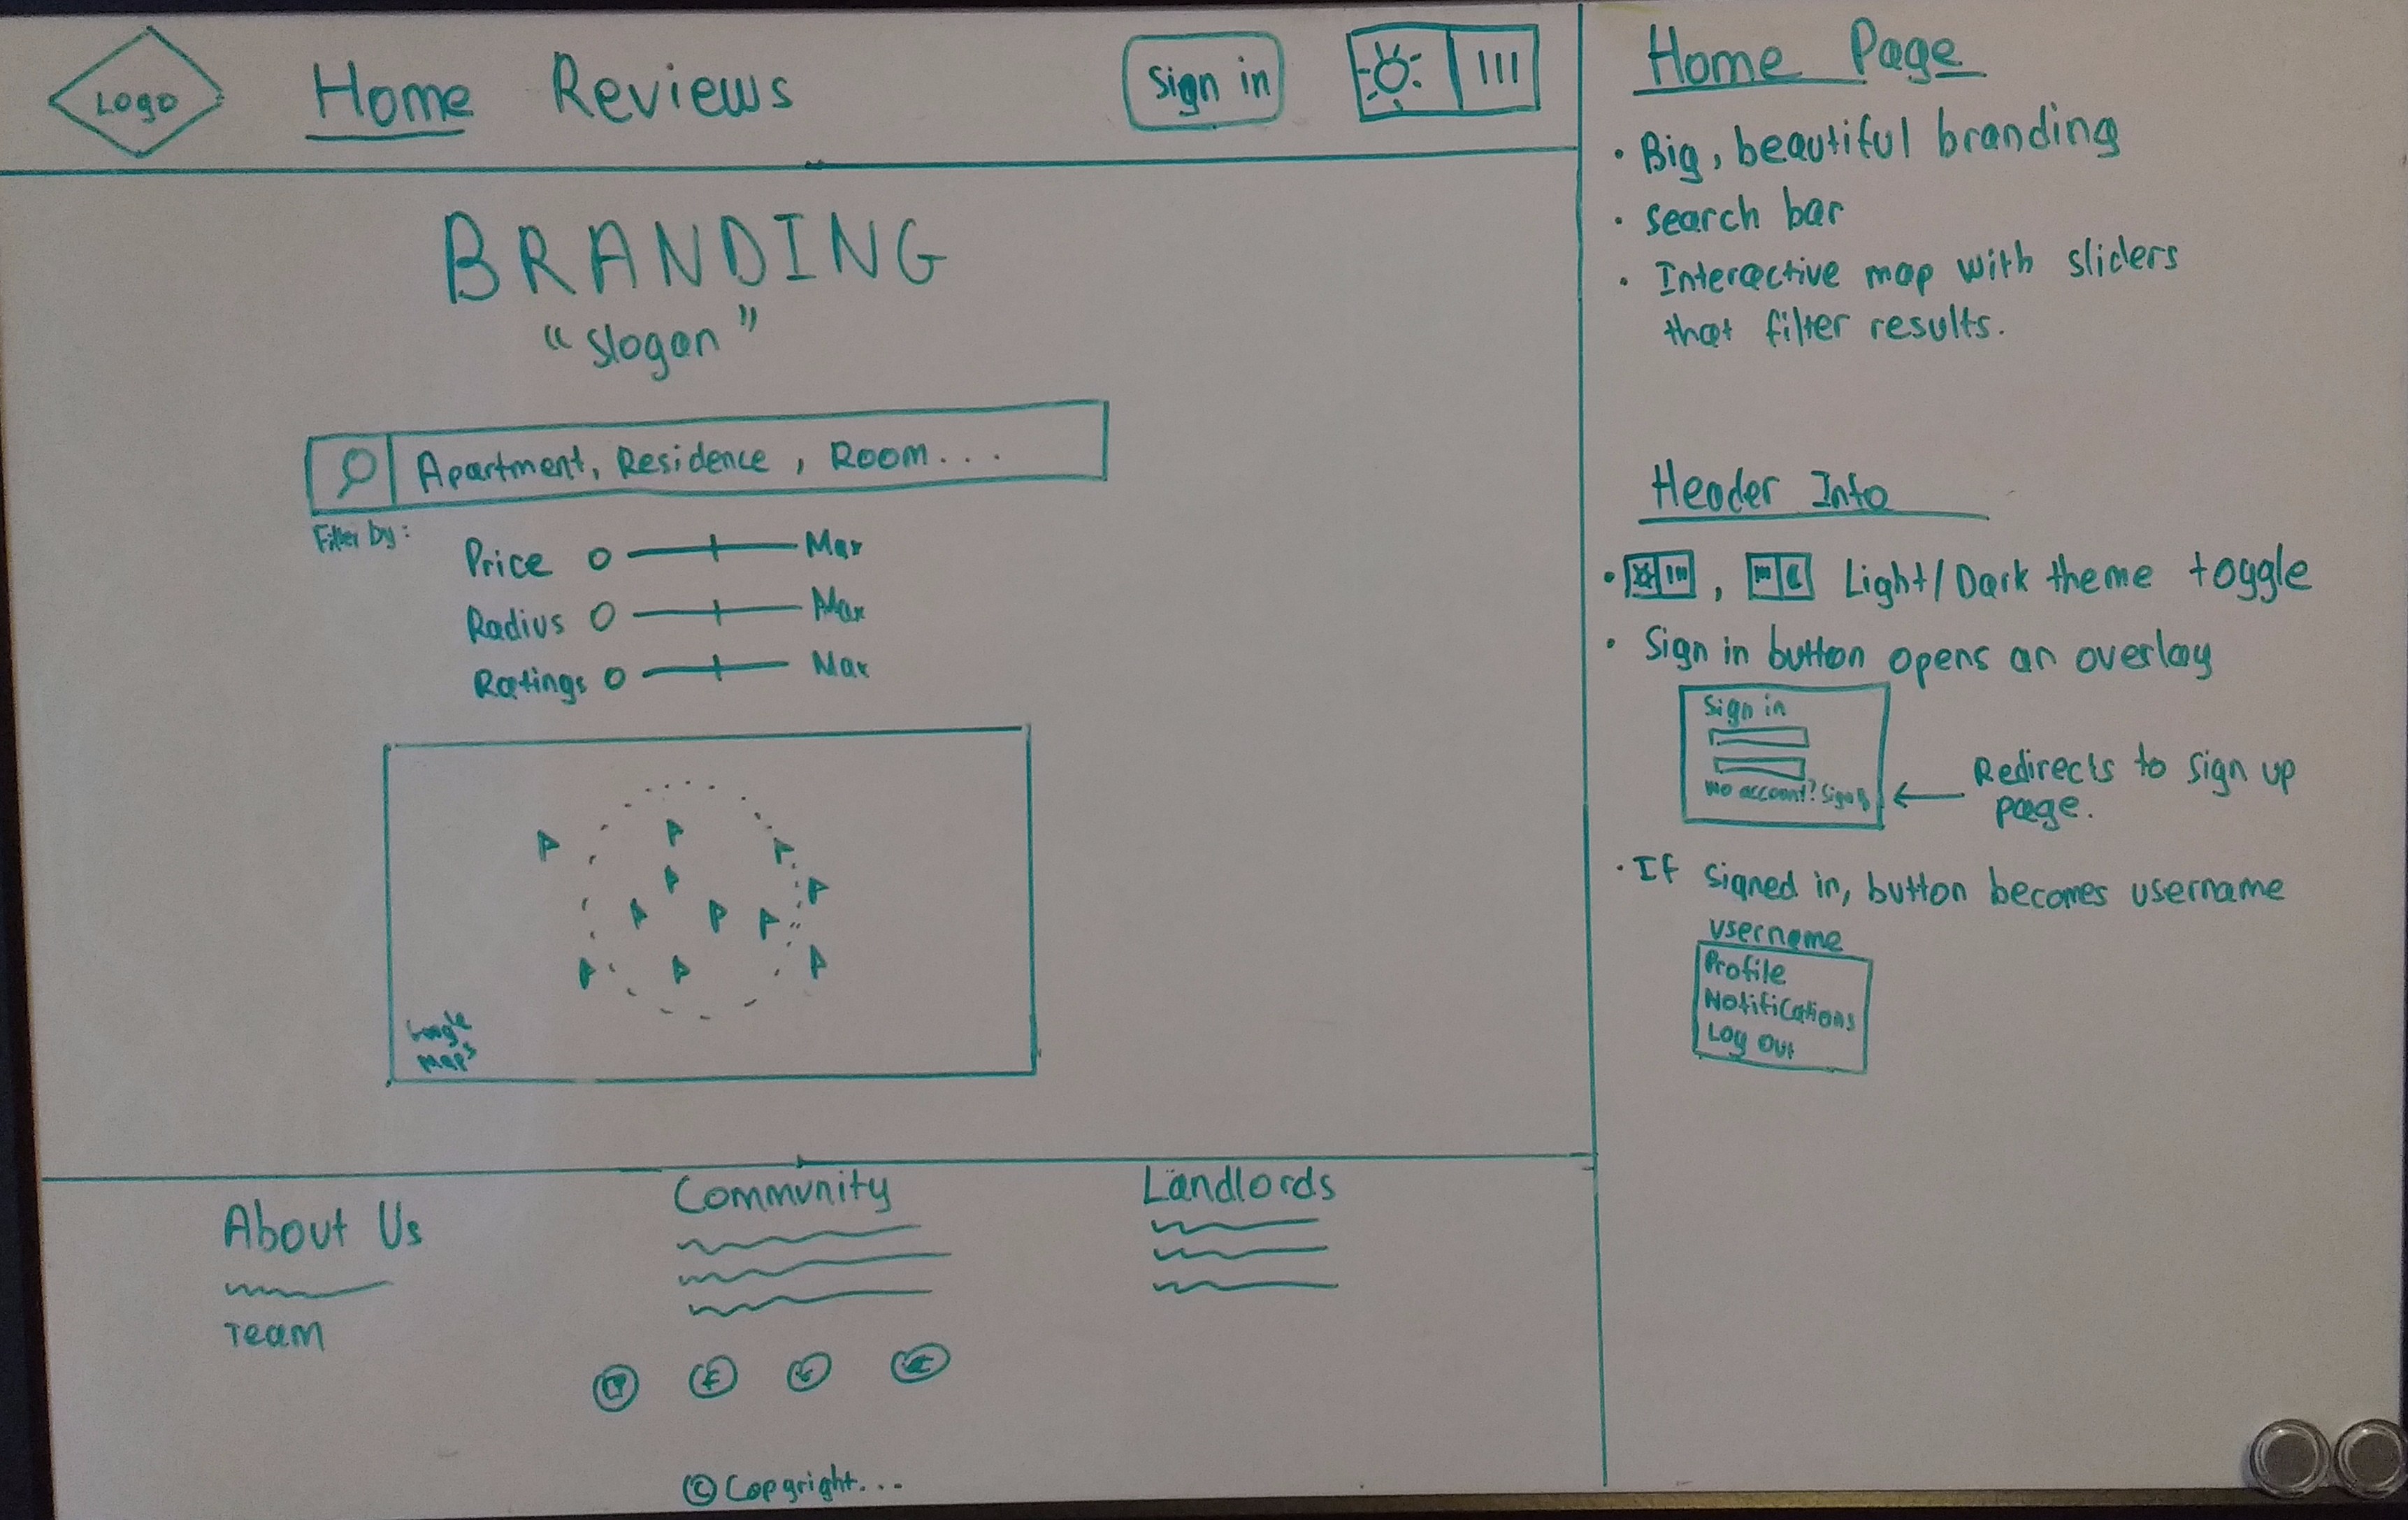 Logo
Home Reviews
Sign in
BRANDING
"slogan"
Apartment, Residence, Room...
Filter by:
Price 0 Max
Radius 0 Max
Ratings 0 Max
Google
Maps
About Us
Team
Community
Landlords
© Copyright...
Home Page
• Big, beautiful branding
• search bar
• Interactive map with sliders
that filter results.
Header Info
• , Light/Dark theme toggle
• Sign in button opens an overlay
Sign in
No account? Sign
Redirects to sign up
page.
• If signed in, button becomes username
username
Profile
Notifications
Log Out